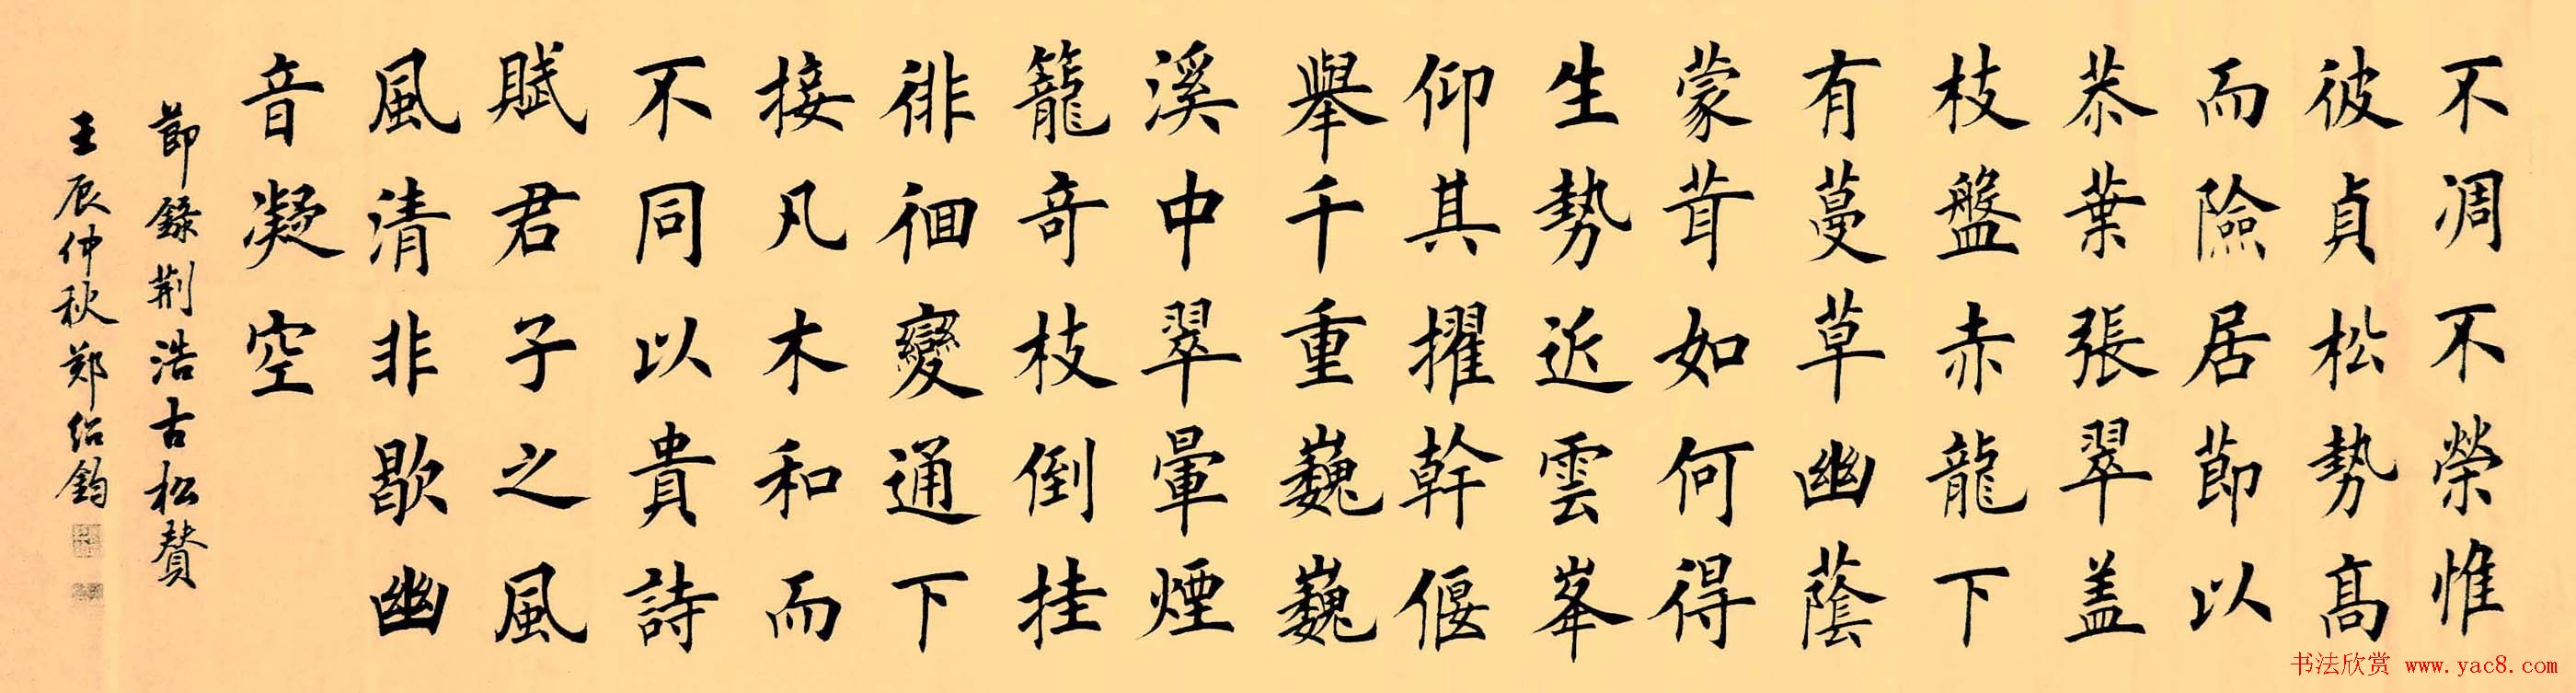 不凋不榮惟
彼貞松勢高
而險居節以
恭葉張翠盖
枝盤赤龍下
有蔓草幽蔭
蒙茸如何得
生勢近雲峯
仰其擢幹偃
舉千重巍巍
溪中翠暈煙
籠奇枝倒挂
徘徊變通下
接凡木和而
不同以貴詩
賦君子之風
風清非歇幽
音凝空
節錄荆浩古松赞
壬辰仲秋郑绍鈞
书法欣赏 www.yac8.com